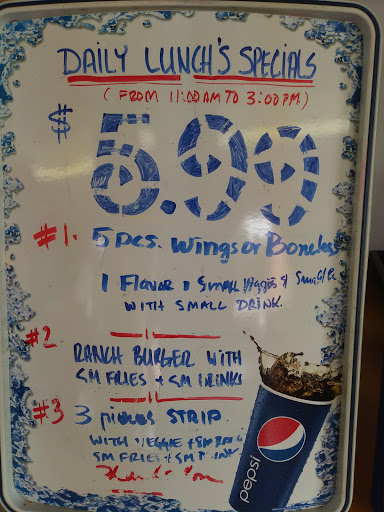 DAILY LUNCH'S SPECIALS
(FROM 11:00AM TO 3:00PM)
$ 5.99
#1. 5 pcs. Wings or Boneless
1 Flavor 1 Small Veggies &
WITH SMALL DRINK
#2
RANCH BURGER WITH
SM FRIES + SM DRINKS
#3 3 pieces STRIP
WITH VEGGIE +
SM FRIES + SM DRINK
Thank You
pepsi